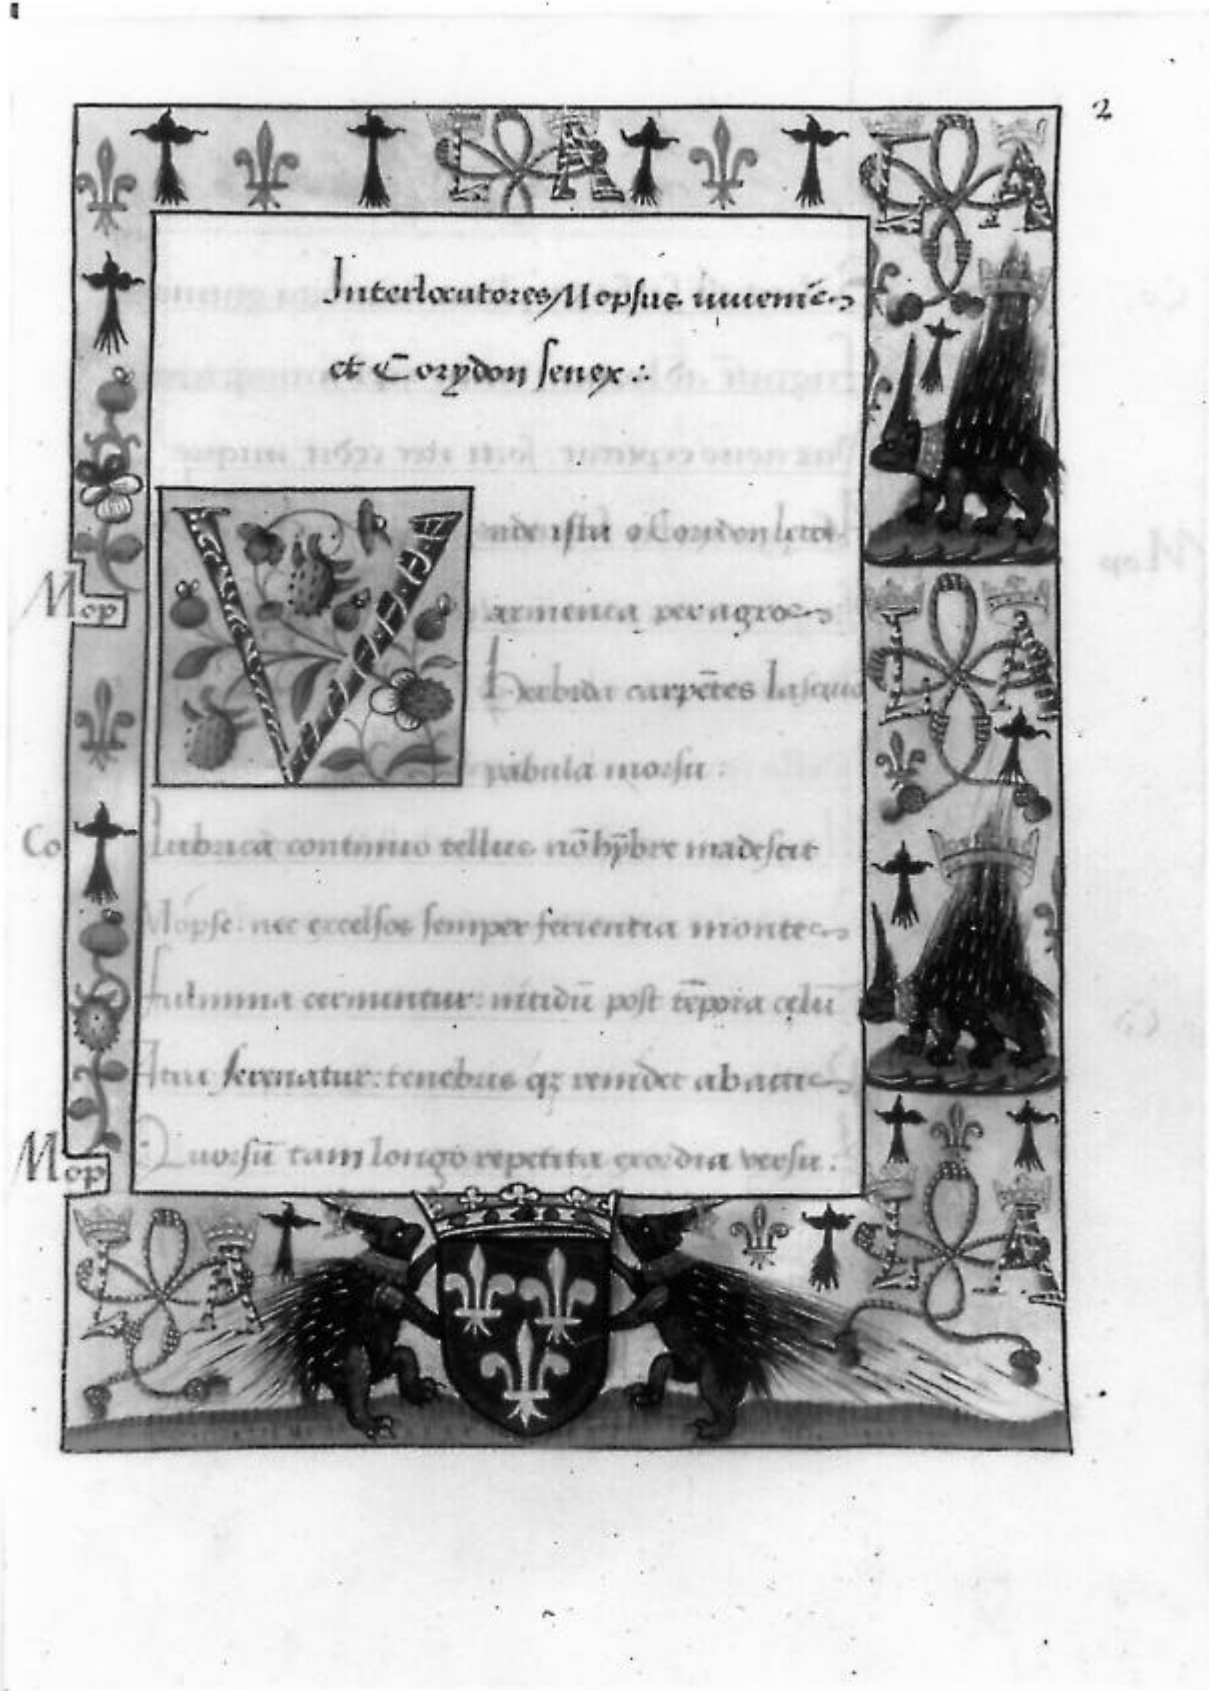 2
Interlocutores/Mopsus iuuenis
et Corydon senex :.
Mop
Vnde istu o Corydon
armenta per agros
Herbida carpētes lasciuo
pabula morsu .
Co
Lubricā continuo tellus nō hȳbre madescit
Mopse nec excelsos semper ferientia montes
fulmina cernuntur: nitidū post tēpora celū
serenatur: tenebris qȝ renidet abactis
Mop
Quorsū tam longo repetita exordia versu .